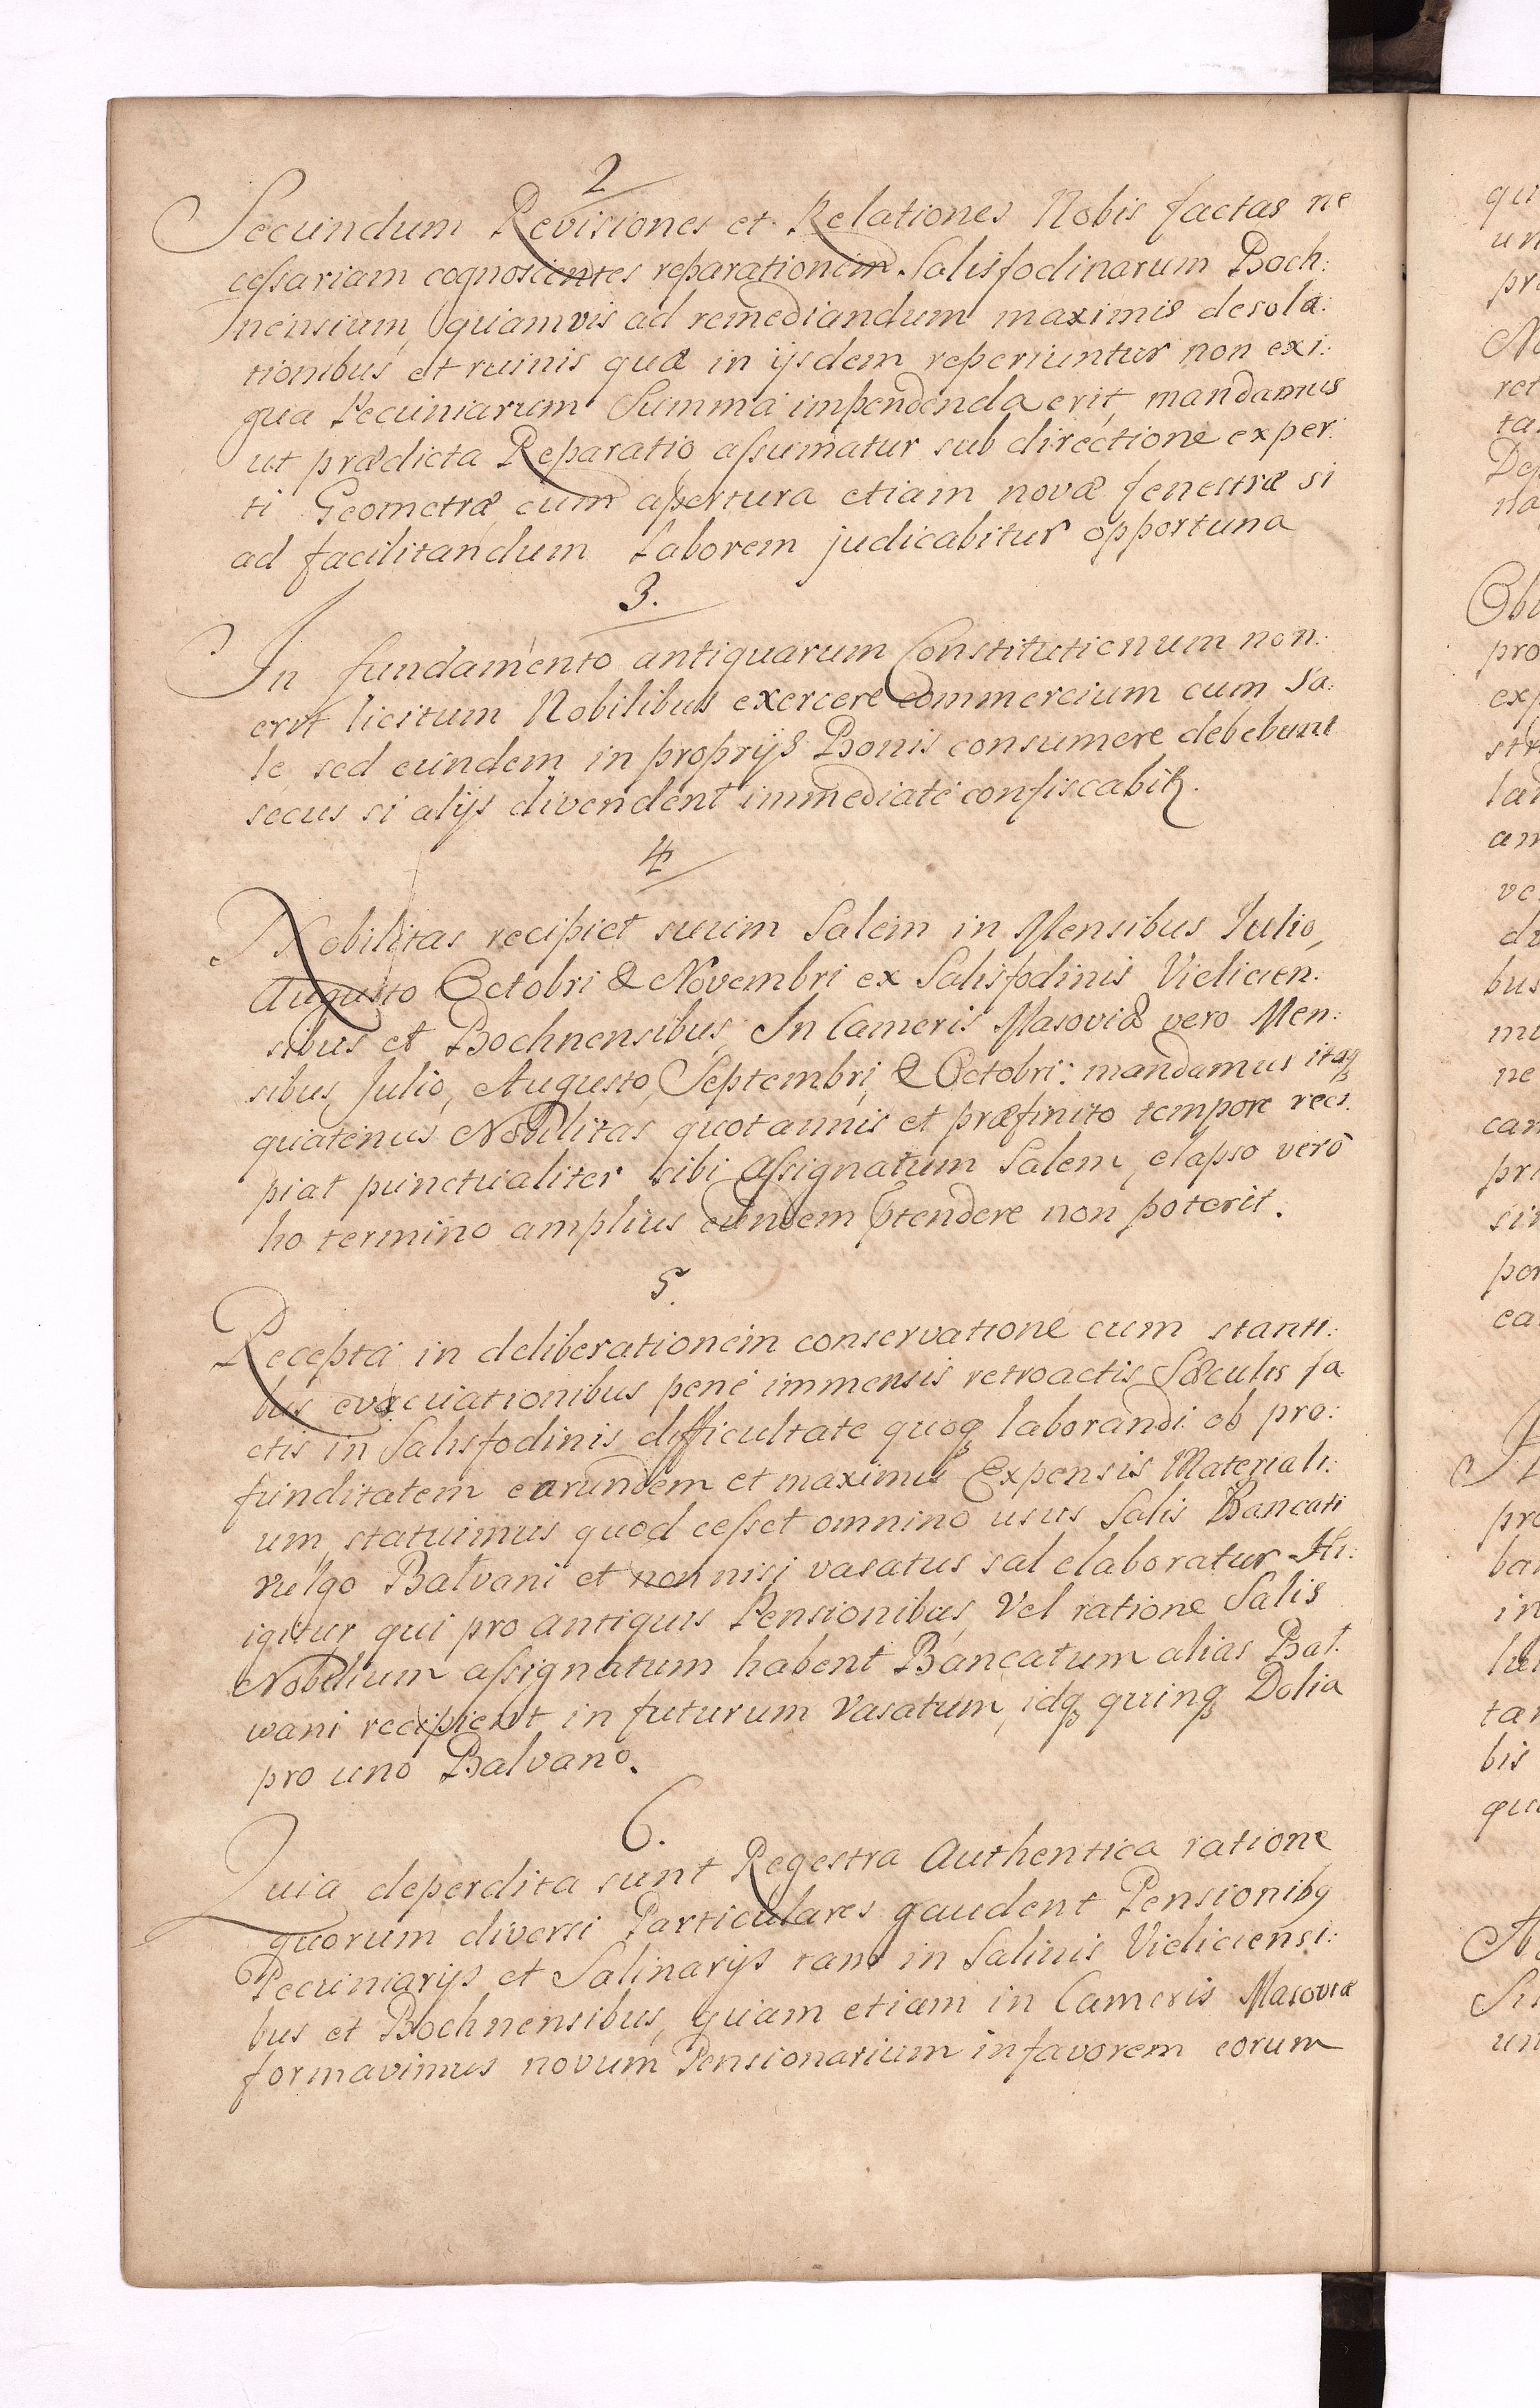 2
Secundum Revisiones et Relationes Nobis factas ne
cessariam cognoscientes reparationem Salisfodinarum Boch:
nensium, quamvis ad remediandum maximis desola:
tionibus et ruinis quæ in ijsdem reperiuntur non exi:
gua Pecuniarum Summa impendenda erit, mandamus
ut prædicta Reparatio assumatur sub directione exper:
ti Geometræ, cum apertura etiam novæ fenestræ si
ad facilitandum Laborem judicabitur opportuna
3.
In fundamento antiquarum Constitutionum non:
erit licitum Nobilibus exercere commercium cum Sa:
le sed eundem in proprijs Bonis consumere debebunt
secus si alijs divendent immediate confiscabitr.
4
Nobilitas recipiet suum Salem in Mensibus Julio,
Augusto Octobri & Novembri ex Salisfodinis Vielicien:
sibus et Bochnensibus, In Cameris Masoviæ vero Men:
sibus, Julio, Augusto, Septembri, & Octobri: mandamus itaq
quatenus Nobilitas quotannis et præfinito tempore reci:
piat punctualiter sibi Assignatum Salem, elapso verò
ho termino amplius eundem prtendere non poterit.
5.
Recepta in deliberationem conservatione cum stanti:
bus evacuationibus penè immensis retroactis Sæculis fa
ctis in Salisfodinis difficultate quoq laborandi ob pro:
funditatem earundem et maximis Expensis Materiali:
um, statuimus quod cesset omnino usus Salis Bancati
vulgo Balvani et non nisi vasatus sal elaboratur Hi:
igitur qui pro antiquis Pensionibus, Vel ratione Salis
Nobilium assignatum habent Bancatum alias Bal:
wani recipient in futurum Vasatum, idq quinq Dolia
pro uno Balvano.
6.
Quia deperdita sunt Regestra Authentica ratione
quorum diversi Particulares gaudent Pensionibq
Pecuniarijs et Salinarijs tam in Salinis Vieliciensi:
bus et Bochnensibus, quam etiam in Cameris Masoviæ
formavimus novum Pensionarium in favorem eorum